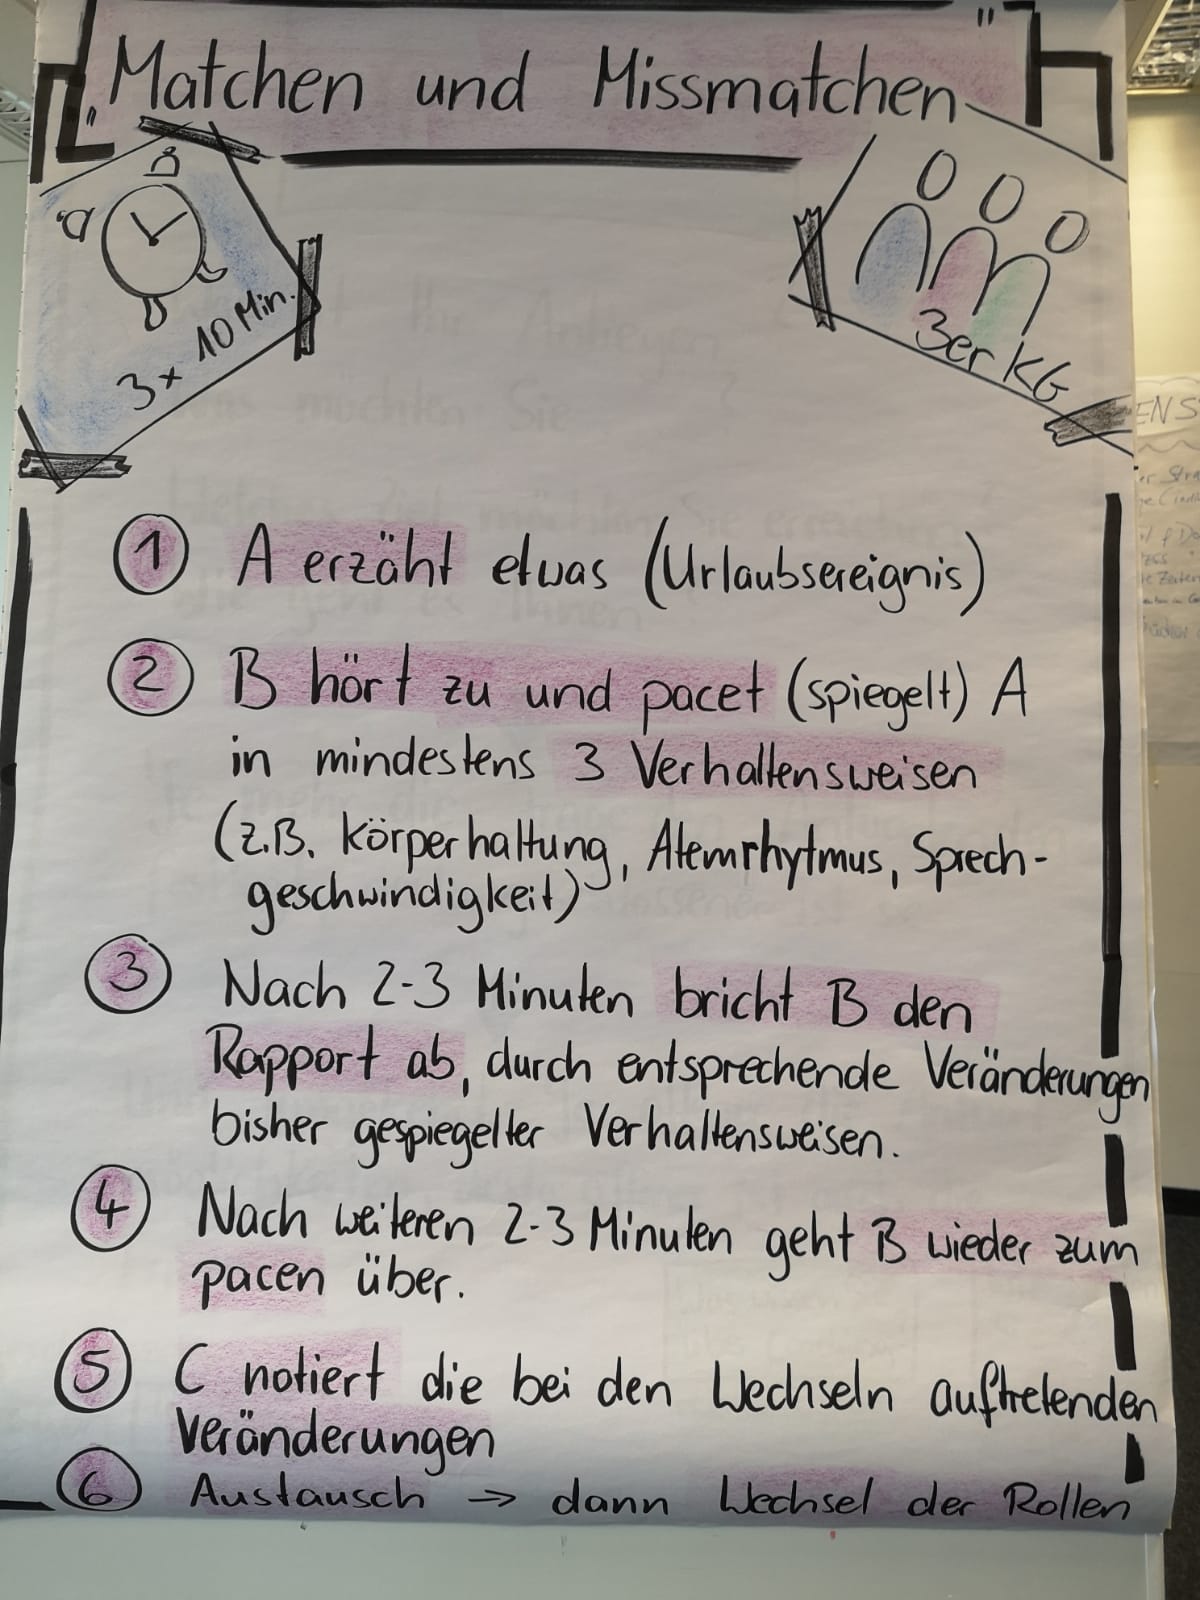 „Matchen und Missmatchen"
3x 10 Min.
3er KG
1 A erzäht etwas (Urlaubsereignis)
2 B hört zu und pacet (spiegelt) A
in mindestens 3 Verhaltensweisen
(z.B. Körperhaltung, Atemrhytmus, Sprech-
geschwindigkeit)
3 Nach 2-3 Minuten bricht B den
Rapport ab, durch entsprechende Veränderungen
bisher gespiegelter Verhaltensweisen.
4 Nach weiteren 2-3 Minuten geht B wieder zum
pacen über.
5 C notiert die bei den Wechseln auftretenden
Veränderungen
6 Austausch → dann Wechsel der Rollen